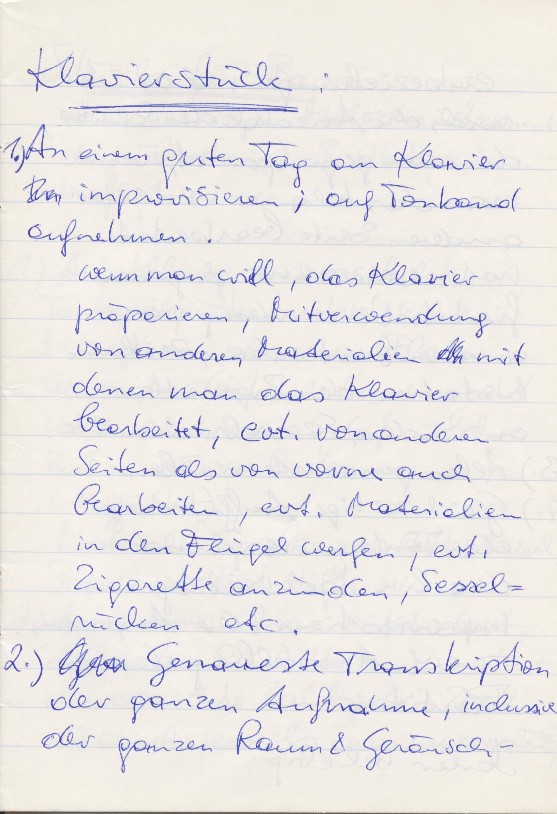 Klavierstück :
1.) An einem guten Tag am Klavier
improvisieren ; auf Tonband
aufnehmen .
wenn man will , das Klavier
präparieren , Mitverwendung
von anderen Materialien mit
denen man das Klavier
bearbeitet , evt. von anderen
Seiten als von vorne auch
bearbeiten , evt. Materialien
in den Flügel werfen , evt.
Zigarette anzünden , Sessel=
rücken etc.
2.) Genaueste Transkription
der ganzen Aufnahme , inclusive
der ganzen Raum & Geräusch-